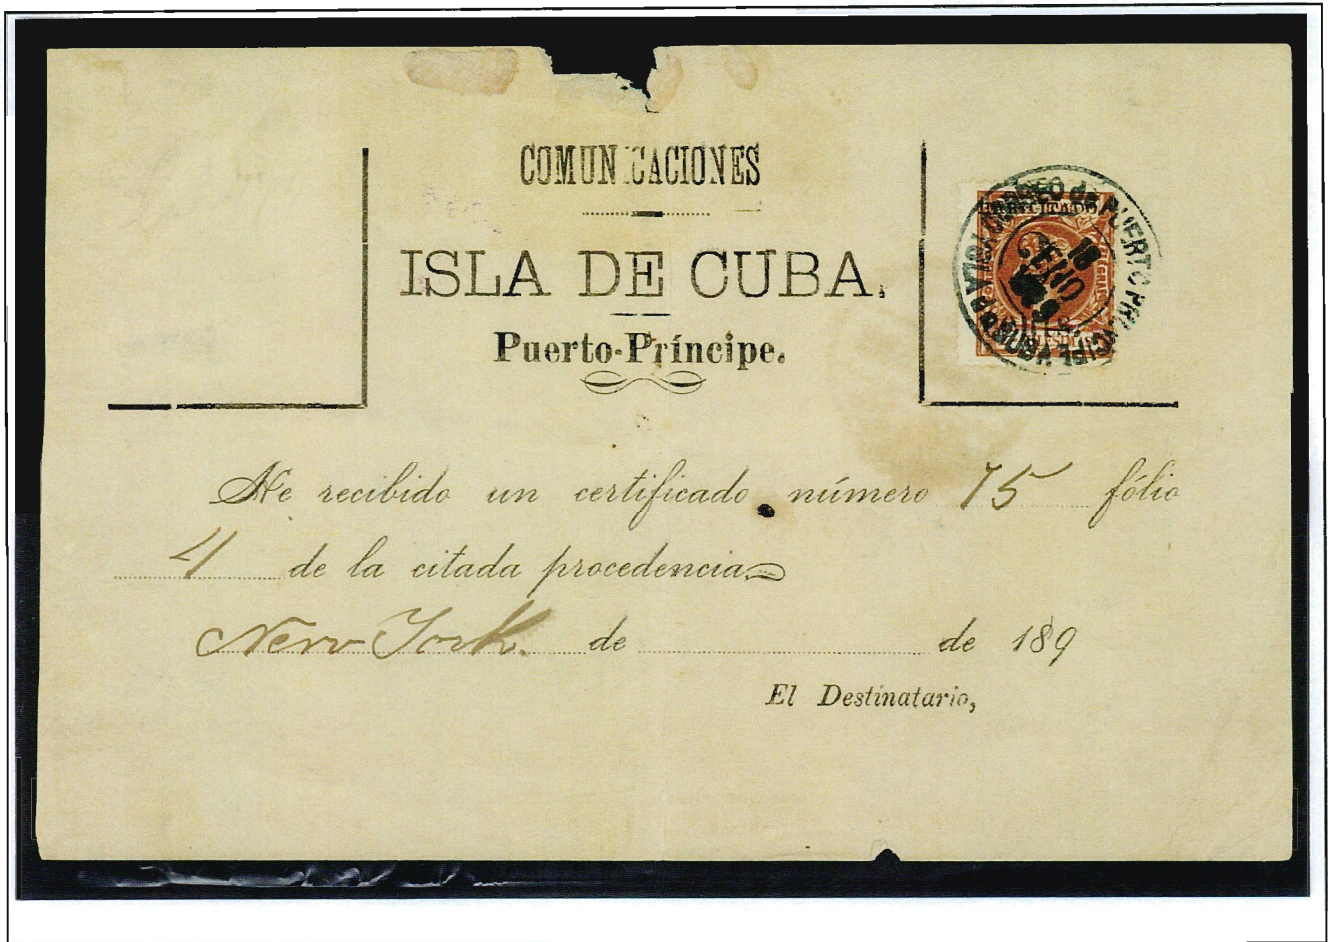 COMUNICACIONES
ISLA DE CUBA.
Puerto-Príncipe.
CORREO de PUERTO PRINCIPE
ISLA
ENO
He recibido un certificado número 75 fólio
4 de la citada procedencia
New York. de de 189
El Destinatario,